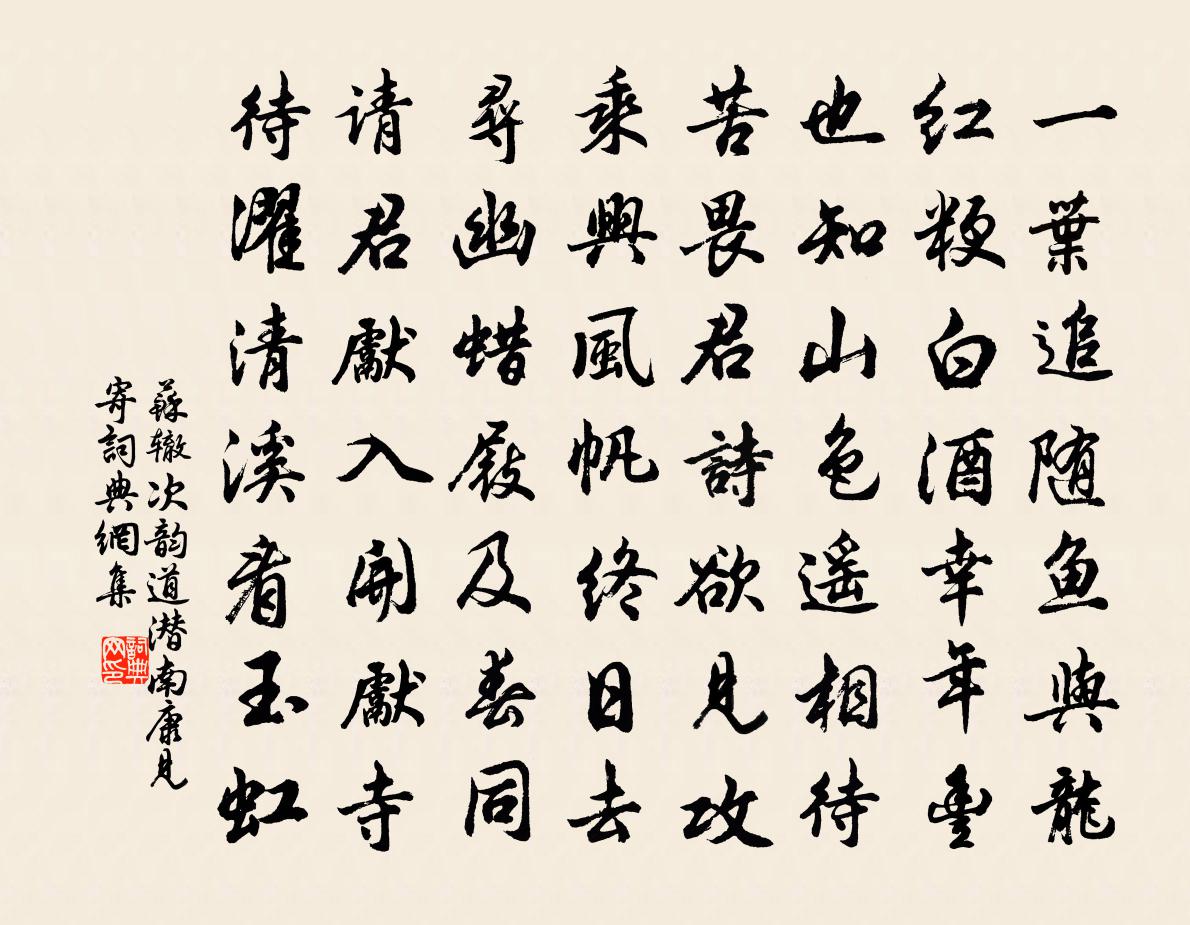 一葉追随鱼與龍
红粳白酒幸年豐
也知山色遥相待
苦畏君詩欲見攻
乘興風帆终日去
尋幽蜡屐及春同
请君獻入開獻寺
待濯清溪看玉虹
蘇辙次韵道潜南康見
寄詞典網集
詞典网印